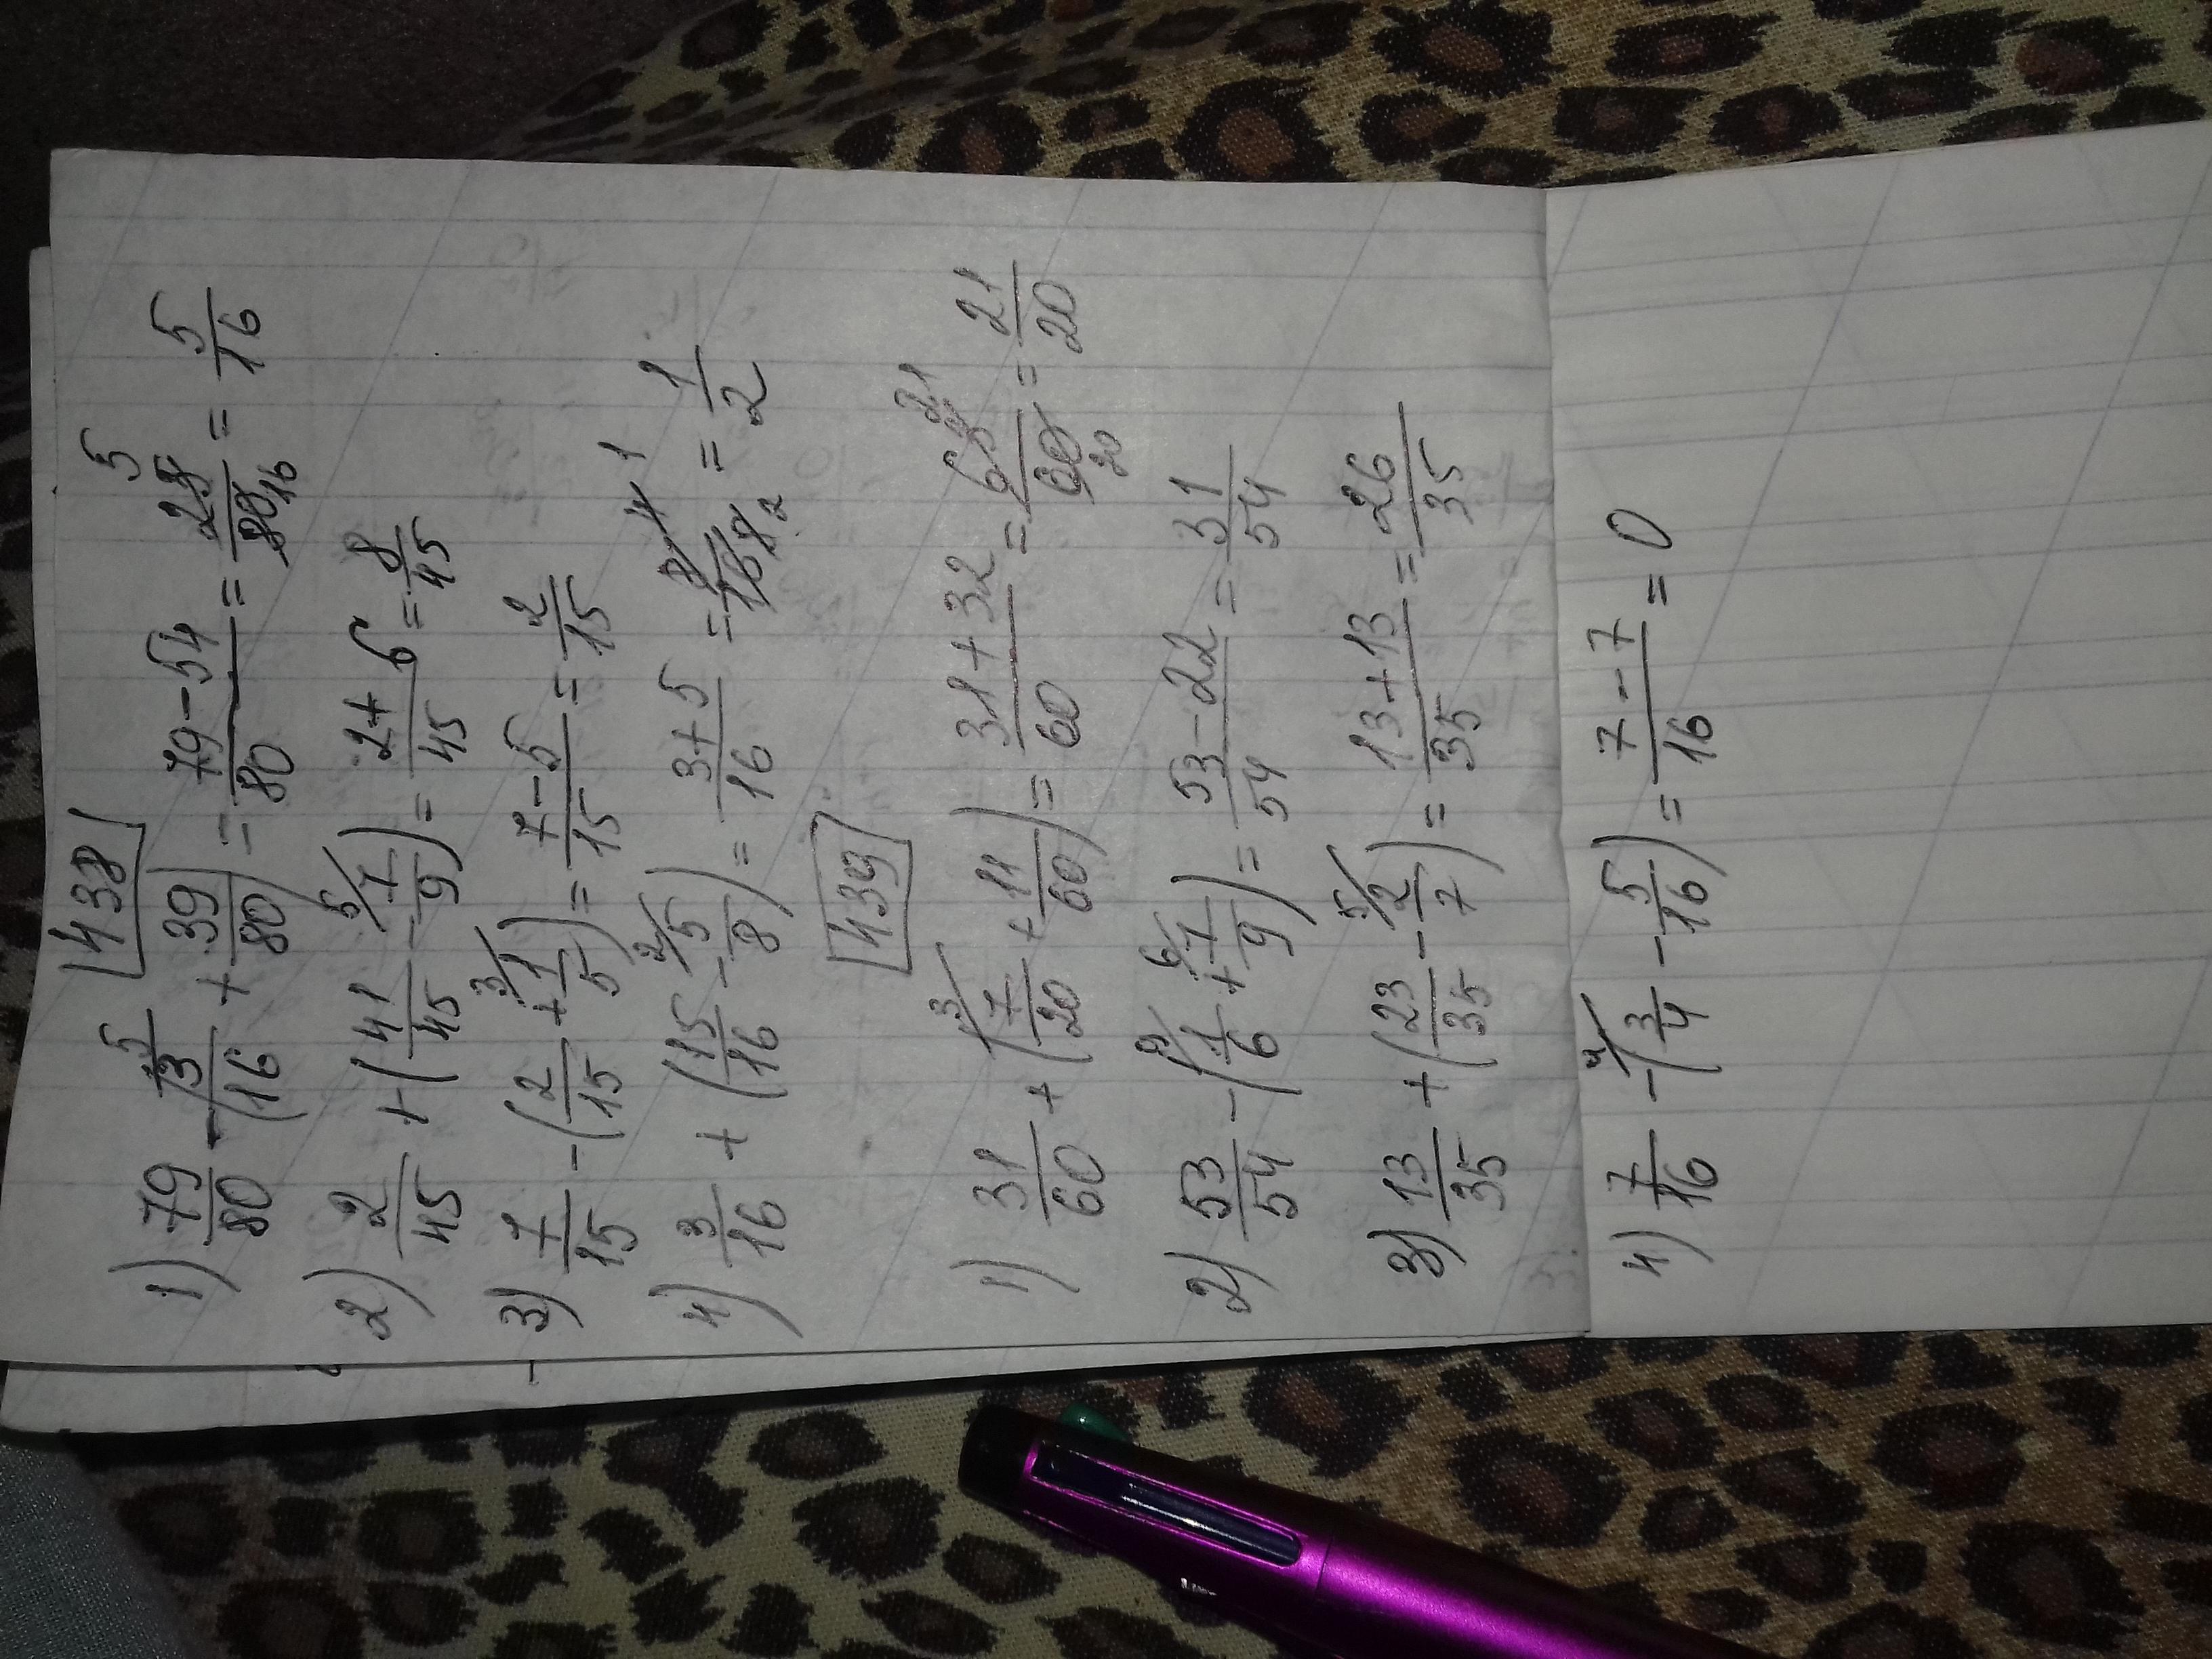 438
1) 79/80 - (3/16 + 39/80) = 79-54/80 = 25/80 = 5/16
2) 2/45 + (41/45 - 7/9) = 2+6/45 = 8/45
3) 7/15 - (2/15 + 1/5) = 7-5/15 = 2/15
4) 3/16 + (15/16 - 5/8) = 3+5/16 = 8/16 = 1/2
439
1) 31/60 + (7/20 + 11/60) = 31+32/60 = 63/60 = 21/20
2) 53/54 - (1/6 + 7/9) = 53-22/54 = 31/54
3) 13/35 + (23/35 - 2/7) = 13+13/35 = 26/35
4) 7/16 - (3/4 - 5/16) = 7-7/16 = 0